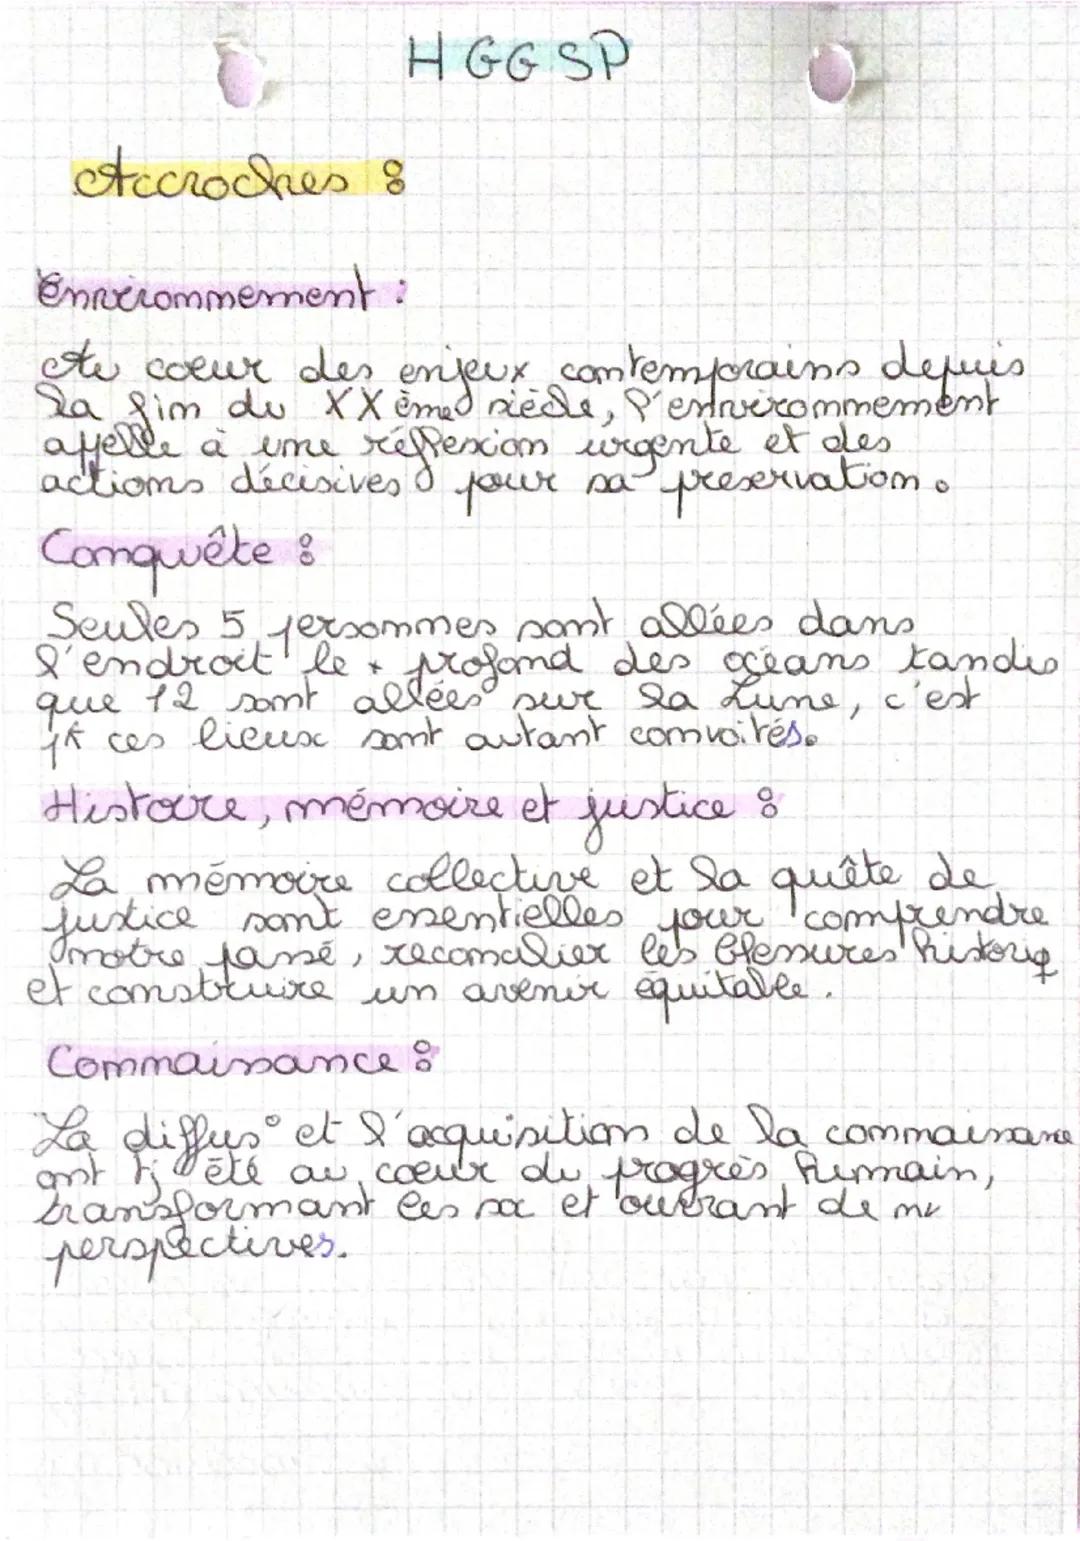 HGGSP
Accroches :
Environnement :
Au coeur des enjeux contemporains depuis
la fin du XXème siècle, l'environnement
appelle à une réflexion urgente et des
actions décisives pour sa preservation.
Conquête :
Seules 5 personnes sont allées dans
l'endroit le + profond des océans tandis
que 12 sont allées sur la Lune, c'est
pk ces lieux sont autant convoités.
Histoire, mémoire et justice :
La mémoire collective et la quête de
justice sont essentielles pour comprendre
notre passé, reconcilier les blessures historiq
et construire un avenir équitable.
Connaissance :
La diffus° et l'acquisition de la connaissance
ont tj été au coeur du progrès humain,
transformant les soc et ouvrant de nv
perspectives.